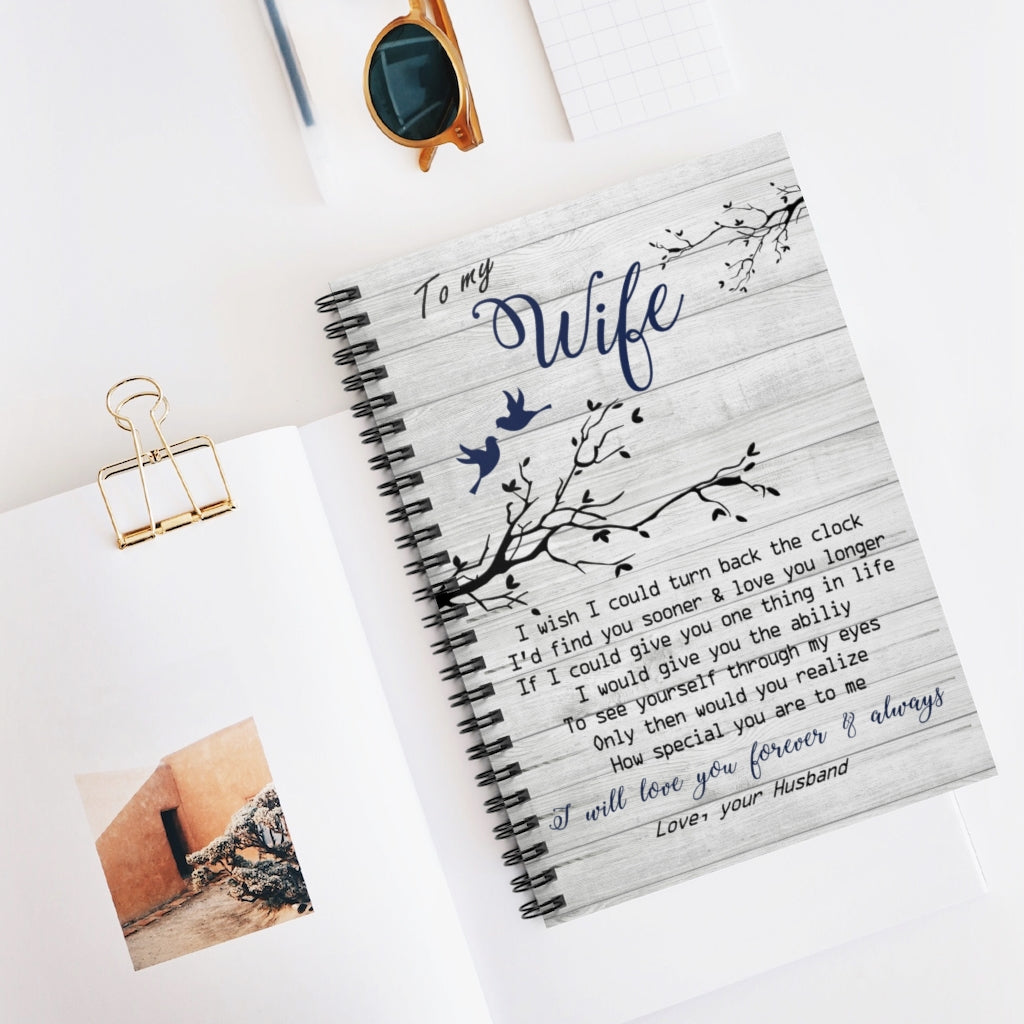 To my
Wife
I wish I could turn back the clock
I'd find you sooner & love you longer
If I could give you one thing in life
I would give you the abiliy
To see yourself through my eyes
Only then would you realize
How special you are to me
I will love you forever & always
Love, your Husband